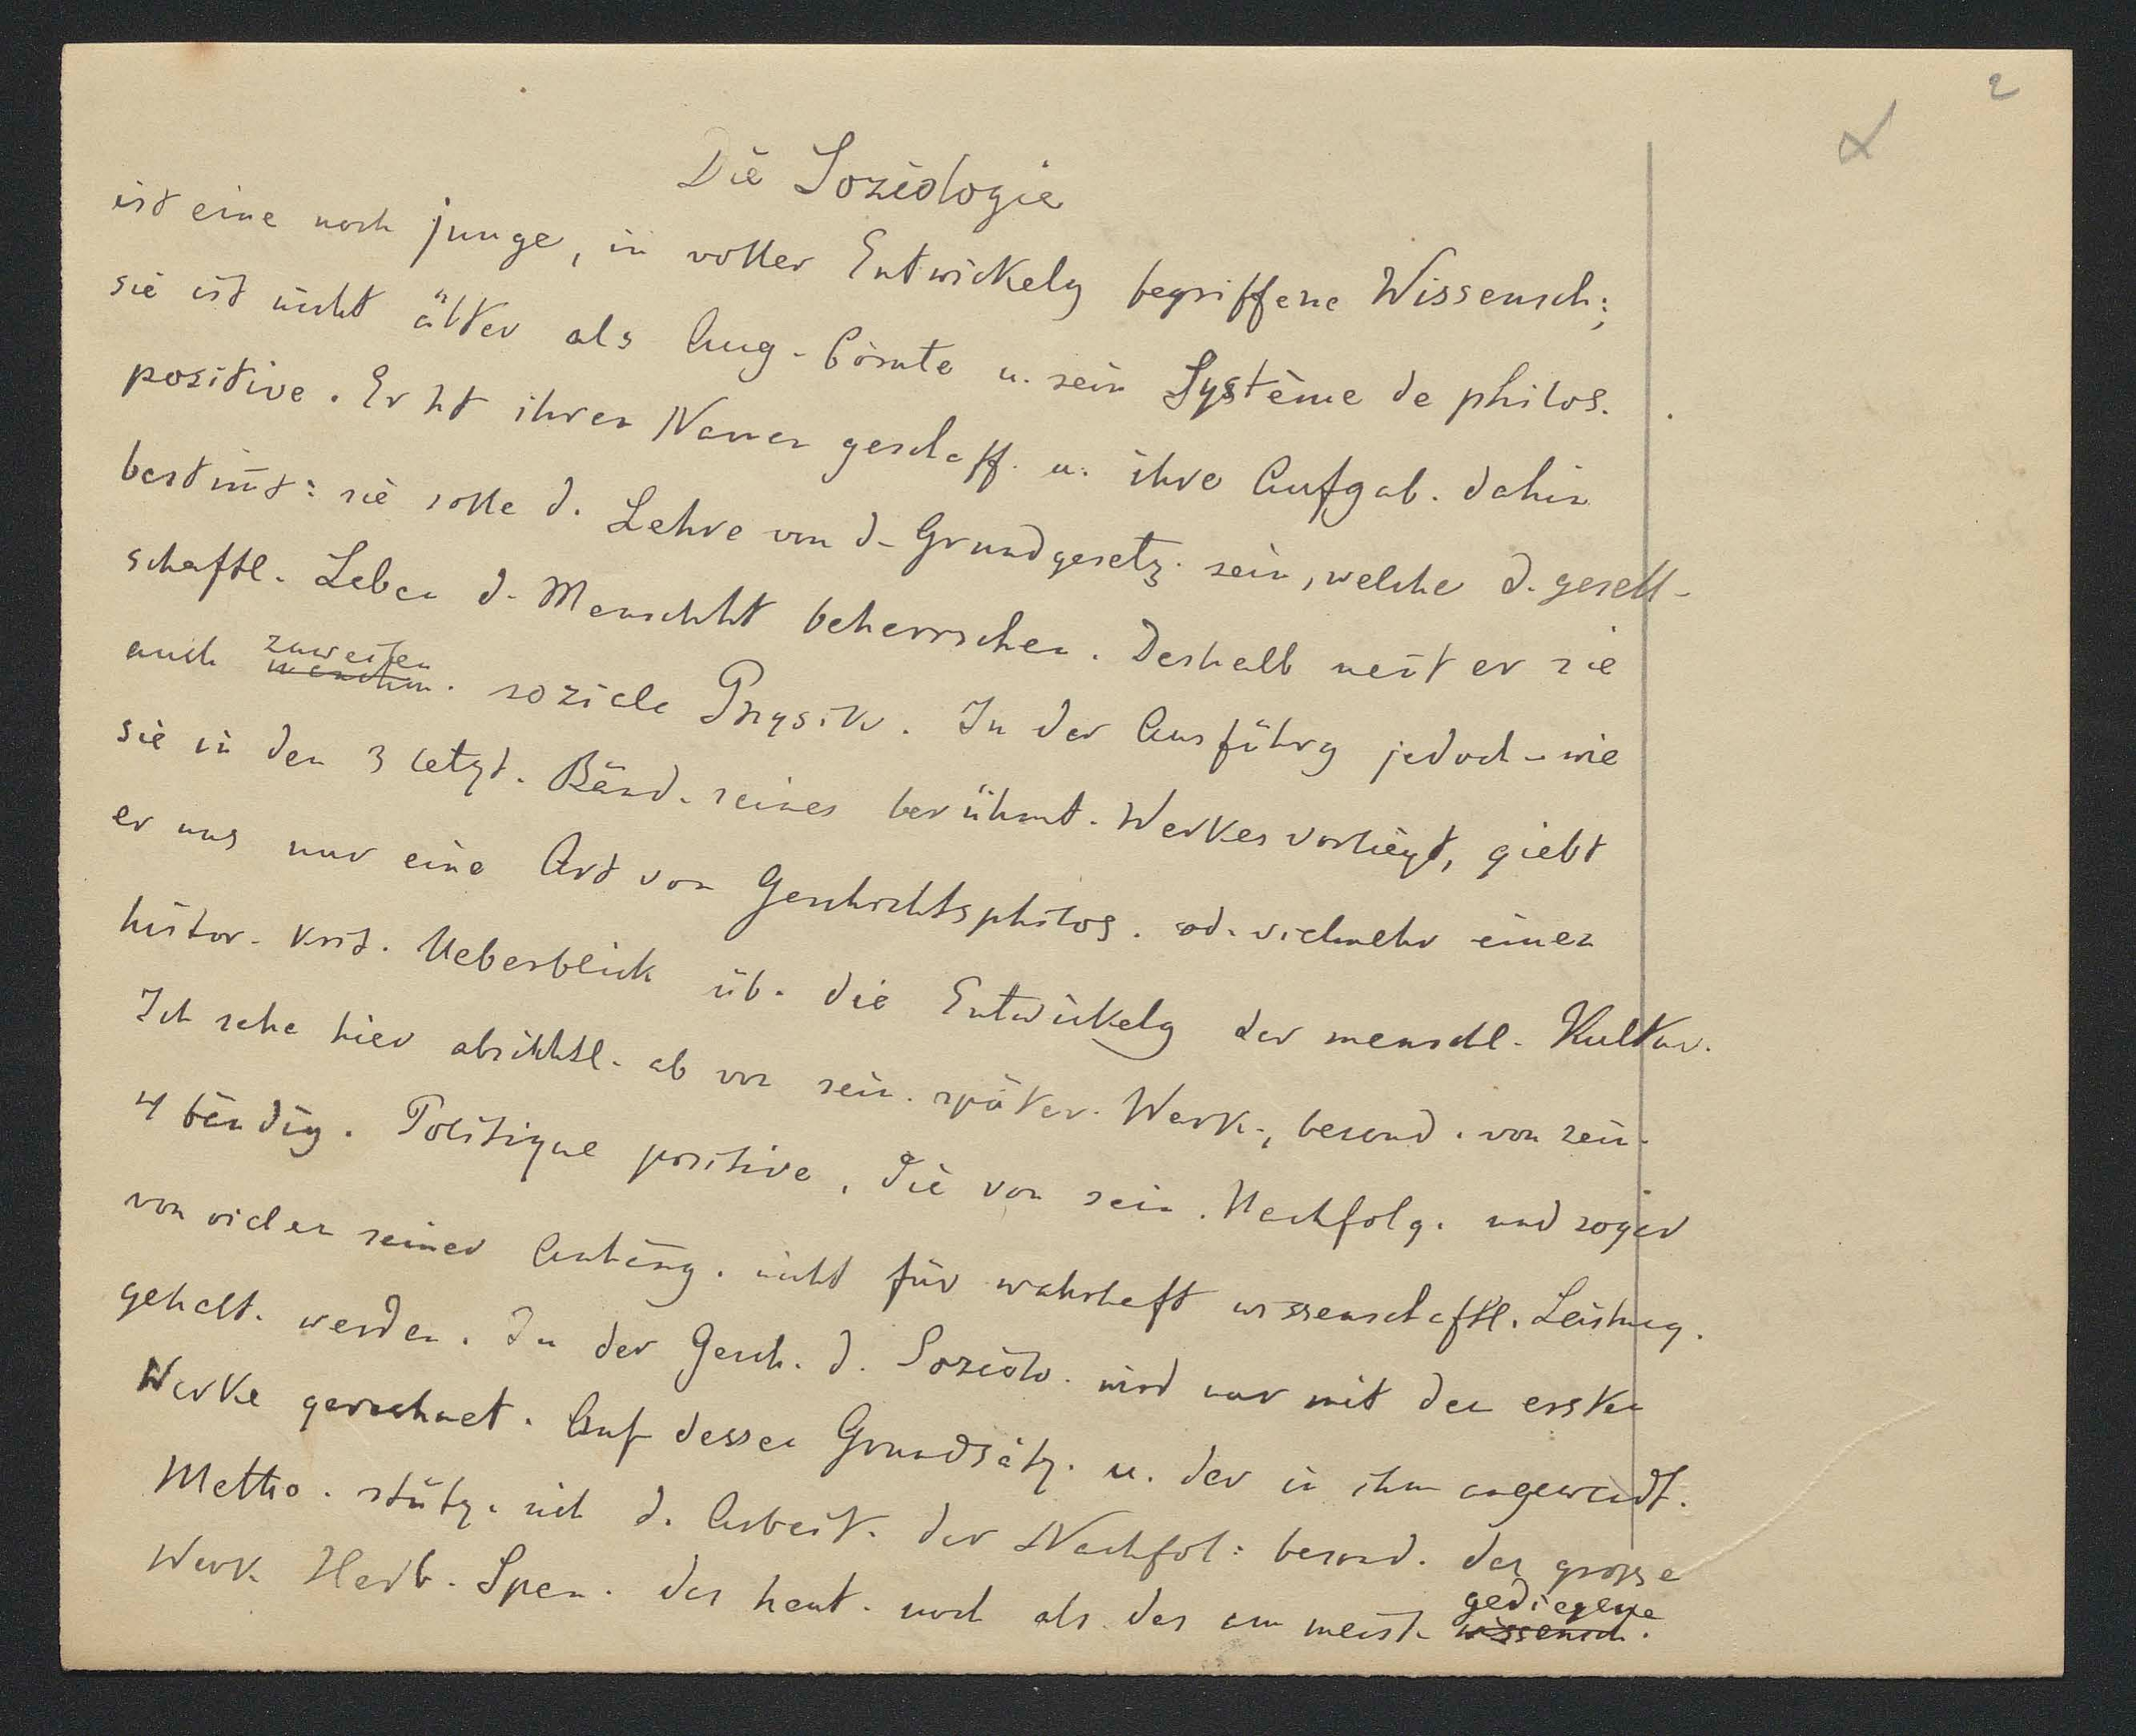 2
Die Soziologie
ist eine noch junge, in voller Entwickelg begriffene Wissensch;
sie ist nicht älter als Aug. Comte u. sein Système de philos.
positive. Er ht ihren Namen geschaff. u. ihre Aufgab. dahin
bestimt: sie solle d. Lehre von d. Grundgesetz. sein, welche d. gesell-
schaftl. Leben d. Menschht beherrschen. Deshalb nent er sie
auch zuweilen soziale Physik. In der Ausführg jedoch - wie
sie in den 3 letzt. Bänd. seines berühmt. Werkes vorliegt, giebt
er uns nur eine Art von Geschichtsphilos. od. vielmehr einen
histor. krit. Ueberblick üb. die Entwickelg der menschl. Kultur.
Ich sehe hier absichtl. ab von sein. später. Werk., besond. von sein.
4 bändig. Politique positive, die von sein. Nachfolg. und sogar
von vielen seiner Anhäng. nicht für wahrhaft wissenschaftl. Leistung.
gehalt. werden. In der Gesch. d. Soziolo. wird nur mit den ersten
Werke gerechnet. Auf dessen Grundsätz. u. der in ihm angewandt.
Metho. stütz. sich d. Arbeit. der Nachfol: besond. das grosse
Werk Herb. Spen. das heut. noch als das am meist. gediegene
wissensch.